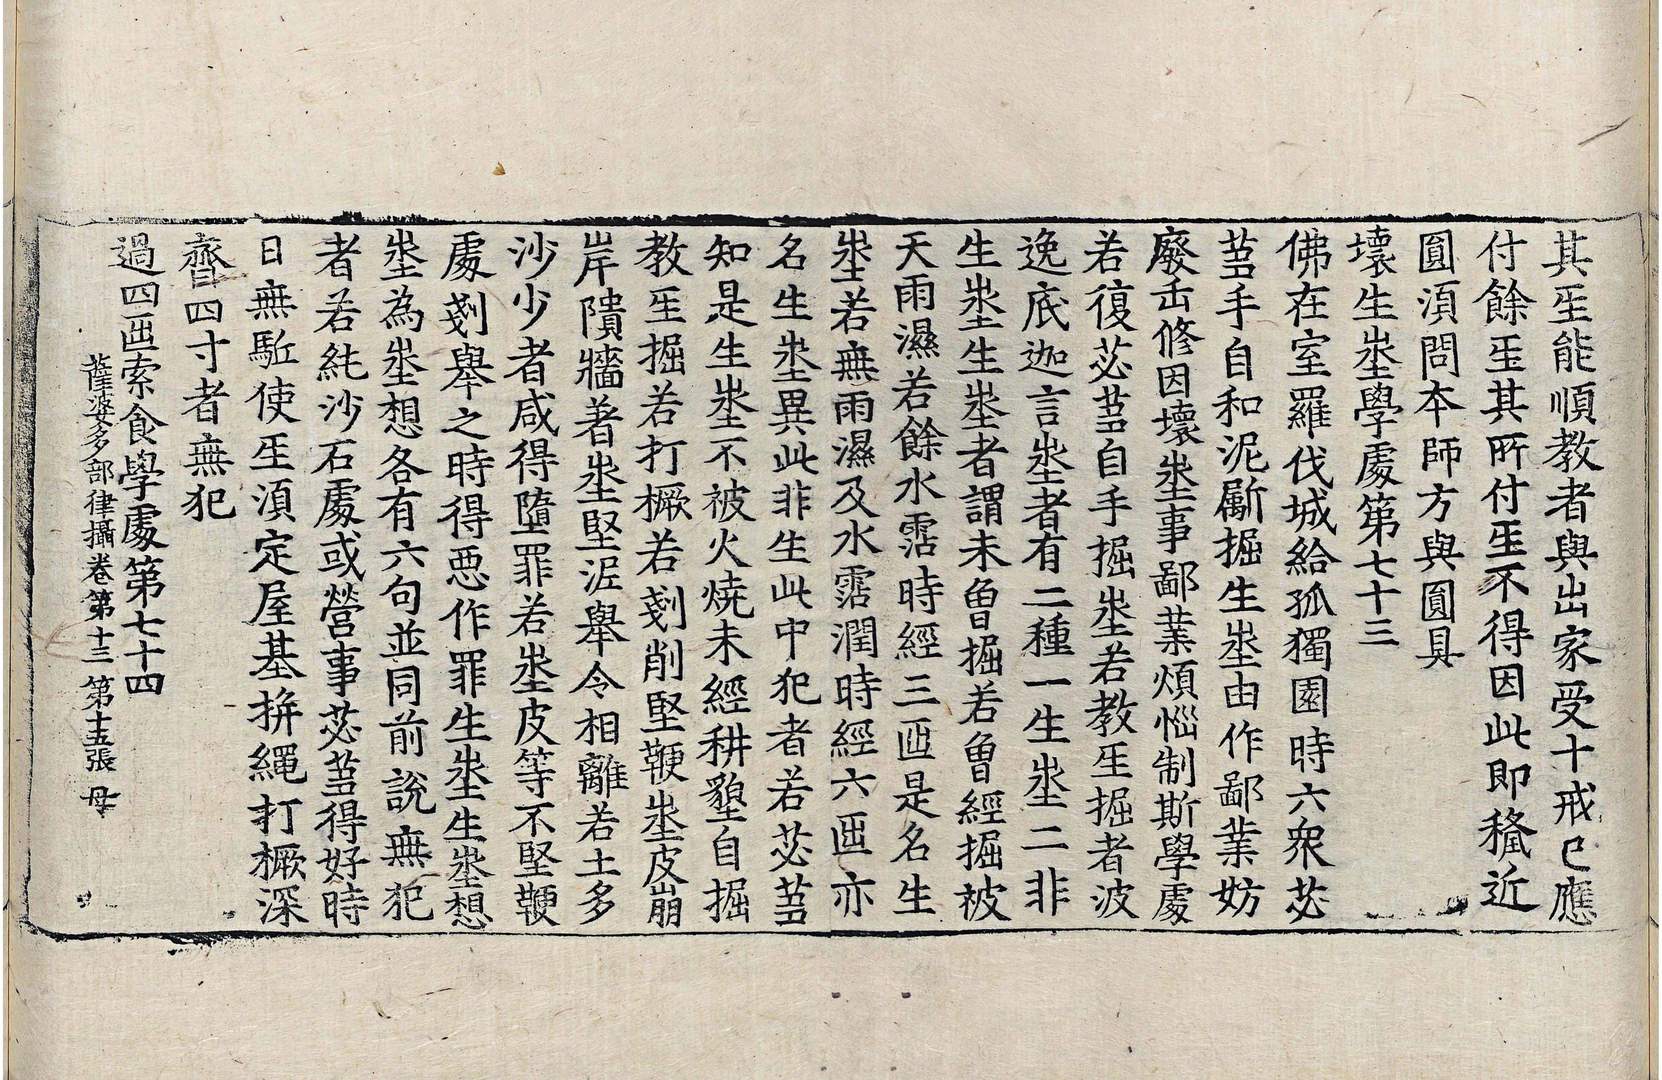 其𤯔能順教者與出家受十戒已應
付餘𤯔其所付𤯔不得因此即穐近
圓湏問本師方與圓具
壞生埊學處第七十三
佛在室羅伐城給孤獨園時六衆苾
芻手自和泥斸掘生埊由作鄙業妨
廢𠙺修因壞埊事鄙業煩惱制斯學處
若復苾芻自手掘埊若教𤯔掘者波
逸底迦言埊者有二種一生埊二非
生埊生埊者謂未曾掘若曾經掘被
天雨濕若餘水霑時經三𠥱是名生
埊若無雨濕及水霑潤時經六𠥱亦
名生埊異此非生此中犯者若苾芻
知是生埊不被火燒未經耕墾自掘
教𤯔掘若打橛若剗削堅鞕埊皮崩
岸隤牆著埊堅泥舉令相離若土多
沙少者咸得墮罪若埊皮等不堅鞕
處剗舉之時得惡作罪生埊生埊想
埊為埊想各有六句並同前說無犯
者若純沙石處或營事苾芻得好時
日無䭾使𤯔湏定屋基拼繩打橛深
齊四寸者無犯
過四𠥱索食學處第七十四
薩婆多部律攝卷第十三 第十五張 母